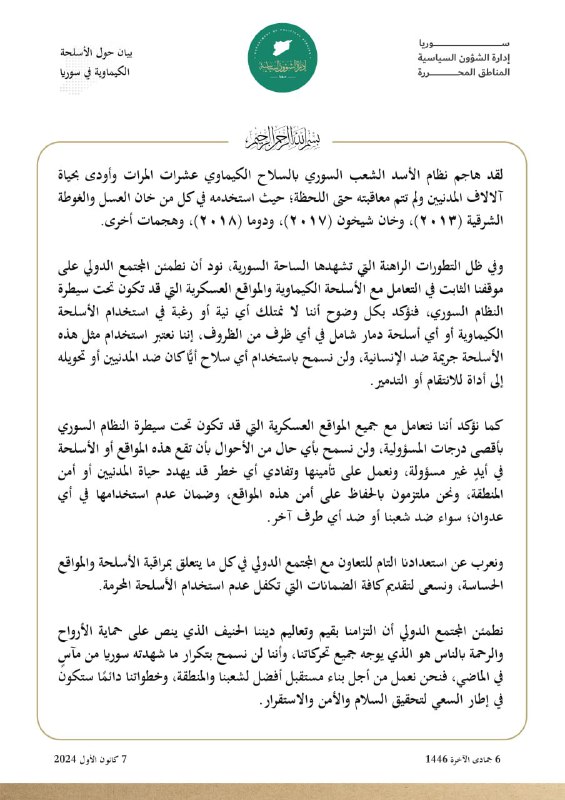 ســــوريا
إدارة الشؤون السياسية
المناطق المحــــررة
إدارة الشؤون السياسية
بيان حول الأسلحة
الكيماوية في سوريا
بسم الله الرحمن الرحيم
لقد هاجم نظام الأسد الشعب السوري بالسلاح الكيماوي عشرات المرات وأودى بحياة
آلالاف المدنيين ولم تتم معاقبته حتى اللحظة؛ حيث استخدمه في كل من خان العسل والغوطة
الشرقية (٢٠١٣)، وخان شيخون (٢٠١٧)، ودوما (٢٠١٨)، وهجمات أخرى.
وفي ظل التطورات الراهنة التي تشهدها الساحة السورية، نود أن نطمئن المجتمع الدولي على
موقفنا الثابت في التعامل مع الأسلحة الكيماوية والمواقع العسكرية التي قد تكون تحت سيطرة
النظام السوري، فنؤكد بكل وضوح أننا لا نمتلك أي نية أو رغبة في استخدام الأسلحة
الكيماوية أو أي أسلحة دمار شامل في أي ظرف من الظروف، إننا نعتبر استخدام مثل هذه
الأسلحة جريمة ضد الإنسانية، ولن نسمح باستخدام أي سلاح أيًّا كان ضد المدنيين أو تحويله
إلى أداة للانتقام أو التدمير.
كما نؤكد أننا نتعامل مع جميع المواقع العسكرية التي قد تكون تحت سيطرة النظام السوري
بأقصى درجات المسؤولية، ولن نسمح بأي حال من الأحوال بأن تقع هذه المواقع أو الأسلحة
في أيدٍ غير مسؤولة، ونعمل على تأمينها وتفادي أي خطر قد يهدد حياة المدنيين أو أمن
المنطقة، ونحن ملتزمون بالحفاظ على أمن هذه المواقع، وضمان عدم استخدامها في أي
عدوان؛ سواء ضد شعبنا أو ضد أي طرف آخر.
ونعرب عن استعدادنا التام للتعاون مع المجتمع الدولي في كل ما يتعلق بمراقبة الأسلحة والمواقع
الحساسة، ونسعى لتقديم كافة الضمانات التي تكفل عدم استخدام الأسلحة المحرمة.
نطمئن المجتمع الدولي أن التزامنا بقيم وتعاليم ديننا الحنيف الذي ينص على حماية الأرواح
والرحمة بالناس هو الذي يوجه جميع تحركاتنا، وأننا لن نسمح بتكرار ما شهدته سوريا من مآسٍ
في الماضي، فنحن نعمل من أجل بناء مستقبل أفضل لشعبنا والمنطقة، وخطواتنا دائمًا ستكون
في إطار السعي لتحقيق السلام والأمن والاستقرار.
6 جمادى الآخرة 1446
7 كانون الأول 2024